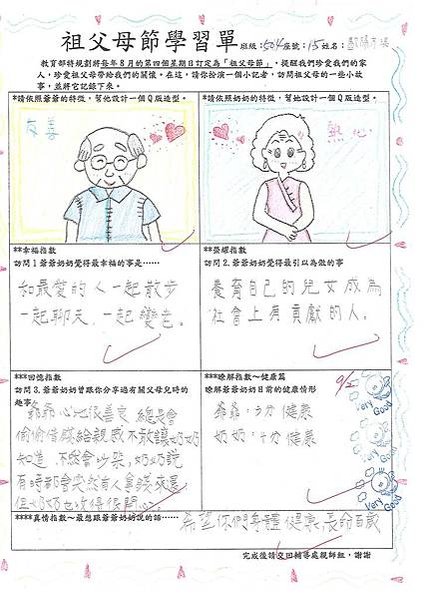 祖父母節學習單 班級:504座號:15姓名:
教育部特規劃將每年8月的第四個星期日訂定為「祖父母節」，提醒我們珍愛我們的家
人，珍愛祖父母帶給我們的關懷。在這，請你扮演一個小記者，訪問祖父母的一些小故
事，並將它記錄下來。
*請依照爺爺的特徵，幫他設計一個Q版造型。
友善
*請依照奶奶的特徵，幫她設計一個Q版造型。
熱心
**幸福指數
訪問1爺爺奶奶覺得最幸福的事是……
和最愛的人一起散步
一起聊天、一起變老。
**榮耀指數
訪問2.爺爺奶奶覺得最引以為傲的事
養育自己的兒女成為
社會上有貢獻的人。
***回憶指數
訪問3.爺爺奶奶曾跟你分享過有關父母兒時的
趣事
爺爺心地很善良 總是會
偷偷借錢給親戚不敢讓奶奶
知道,不然會吵架,奶奶說
有時都會突然有人拿錢來還
但奶奶也收得很開心。
***瞭解指數~健康篇
瞭解爺爺奶奶目前的健康情形
爺爺:5分 健康
奶奶:十分 健康
9/2
Very Good
Very Good
Very Good
****真情指數~最想跟爺爺奶奶說的話……
希望你們身體健康,長命百歲
完成後請交回輔導處親師組，謝謝